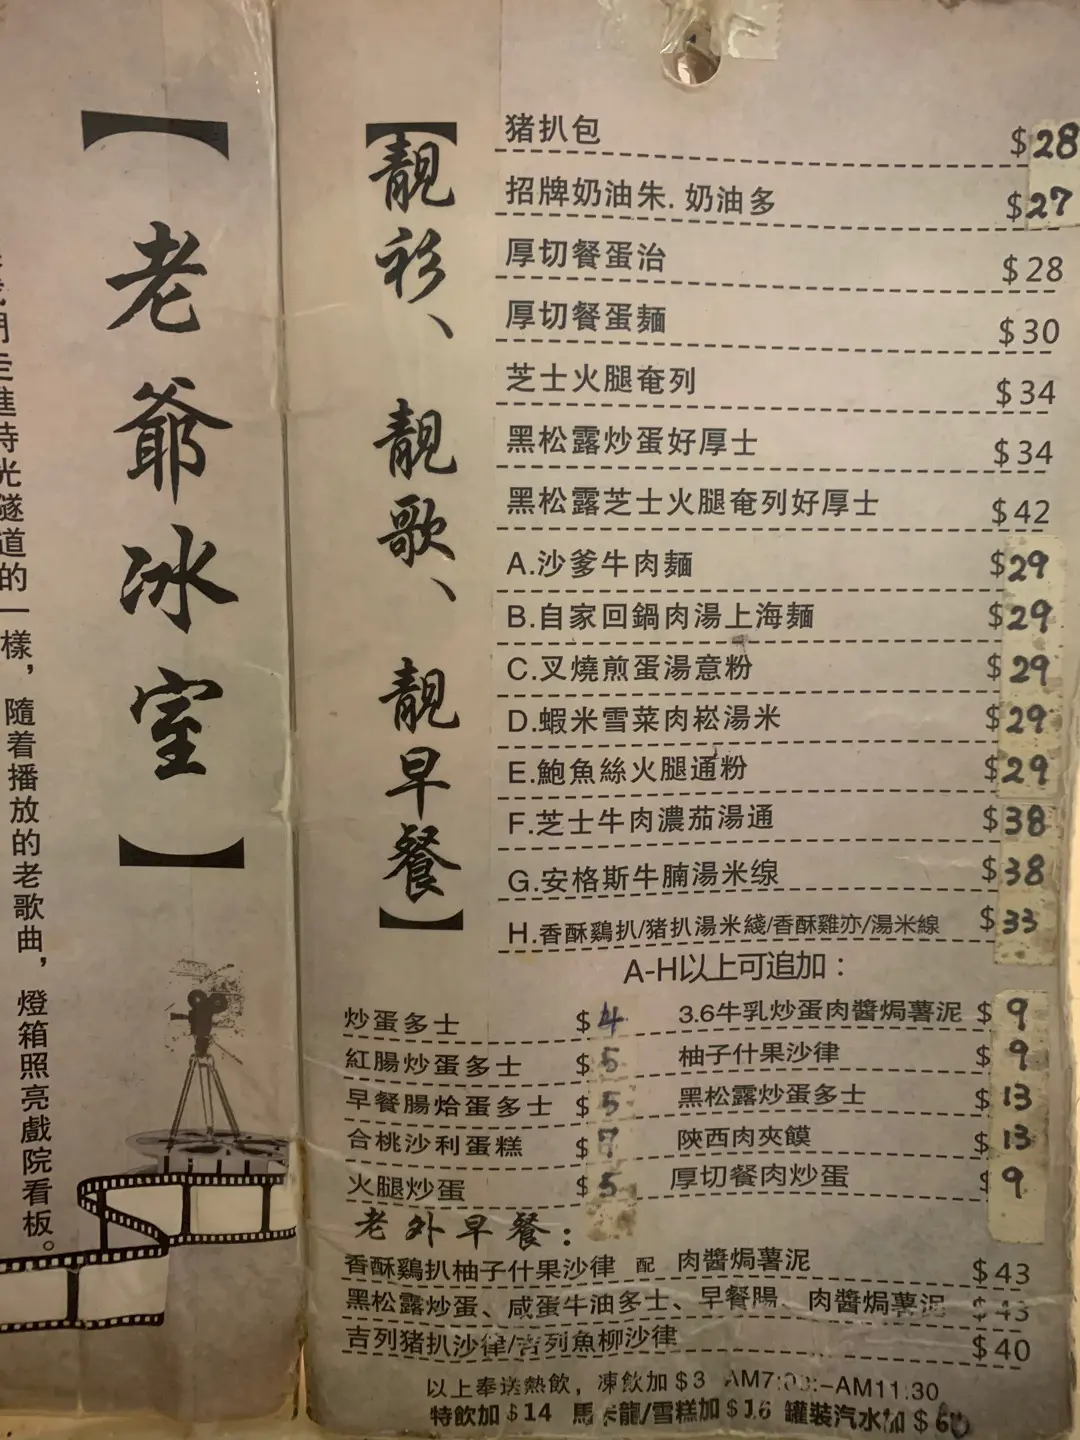 門走進時光隧道的一樣，隨着播放的老歌曲，燈箱照亮戲院看板。
【老爺冰室】
【靚衫、靚歌、靚早餐】
猪扒包 $28
招牌奶油朱.奶油多 $27
厚切餐蛋治 $28
厚切餐蛋麵 $30
芝士火腿奄列 $34
黑松露炒蛋好厚士 $34
黑松露芝士火腿奄列好厚士 $42
A.沙爹牛肉麵 $29
B.自家回鍋肉湯上海麵 $29
C.叉燒煎蛋湯意粉 $29
D.蝦米雪菜肉崧湯米 $29
E.鮑魚絲火腿通粉 $29
F.芝士牛肉濃茄湯通 $38
G.安格斯牛腩湯米缐 $38
H.香酥鷄扒/猪扒湯米綫/香酥雞亦/湯米線 $33
A-H以上可追加：
炒蛋多士 $4 3.6牛乳炒蛋肉醬焗薯泥 $9
紅腸炒蛋多士 $5 柚子什果沙律 $9
早餐腸烚蛋多士 $5 黑松露炒蛋多士 $13
合桃沙利蛋糕 $7 陝西肉夾饃 $13
火腿炒蛋 $5 厚切餐肉炒蛋 $9
老外早餐：
香酥鷄扒柚子什果沙律 配 肉醬焗薯泥 $43
黑松露炒蛋、咸蛋牛油多士、早餐腸、肉醬焗薯泥 $43
吉列猪扒沙律/吉列魚柳沙律 $40
以上奉送熱飲，凍飲加$3 AM7:00:-AM11:30
特飲加$14 馬卡龍/雪糕加$16 罐裝汽水加$6